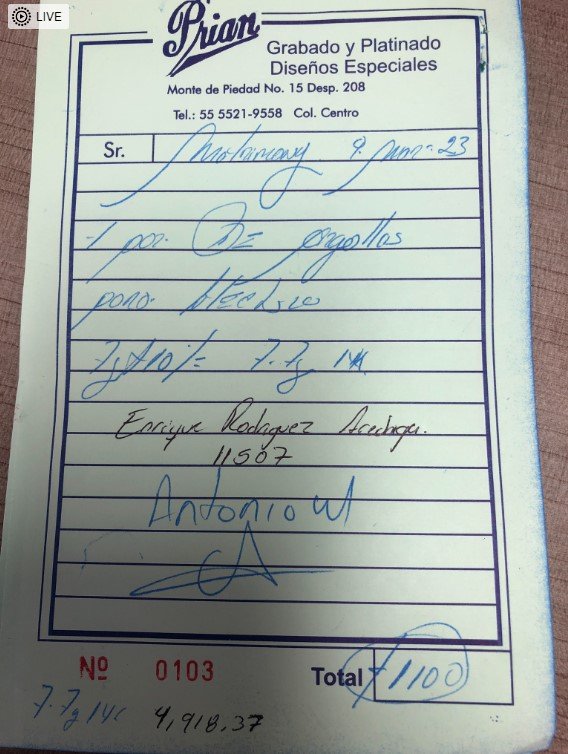 LIVE
Prian
Grabado y Platinado
Diseños Especiales
Monte de Piedad No. 15 Desp. 208
Tel.: 55 5521-9558 Col. Centro
Sr. 9. mar- 23
1 par. De
para
7g +10%= 7.7g 14K
Enrique Rodriguez
11507
Antonio
Nº 0103
Total 1100
7.7g 14K 4,918.37